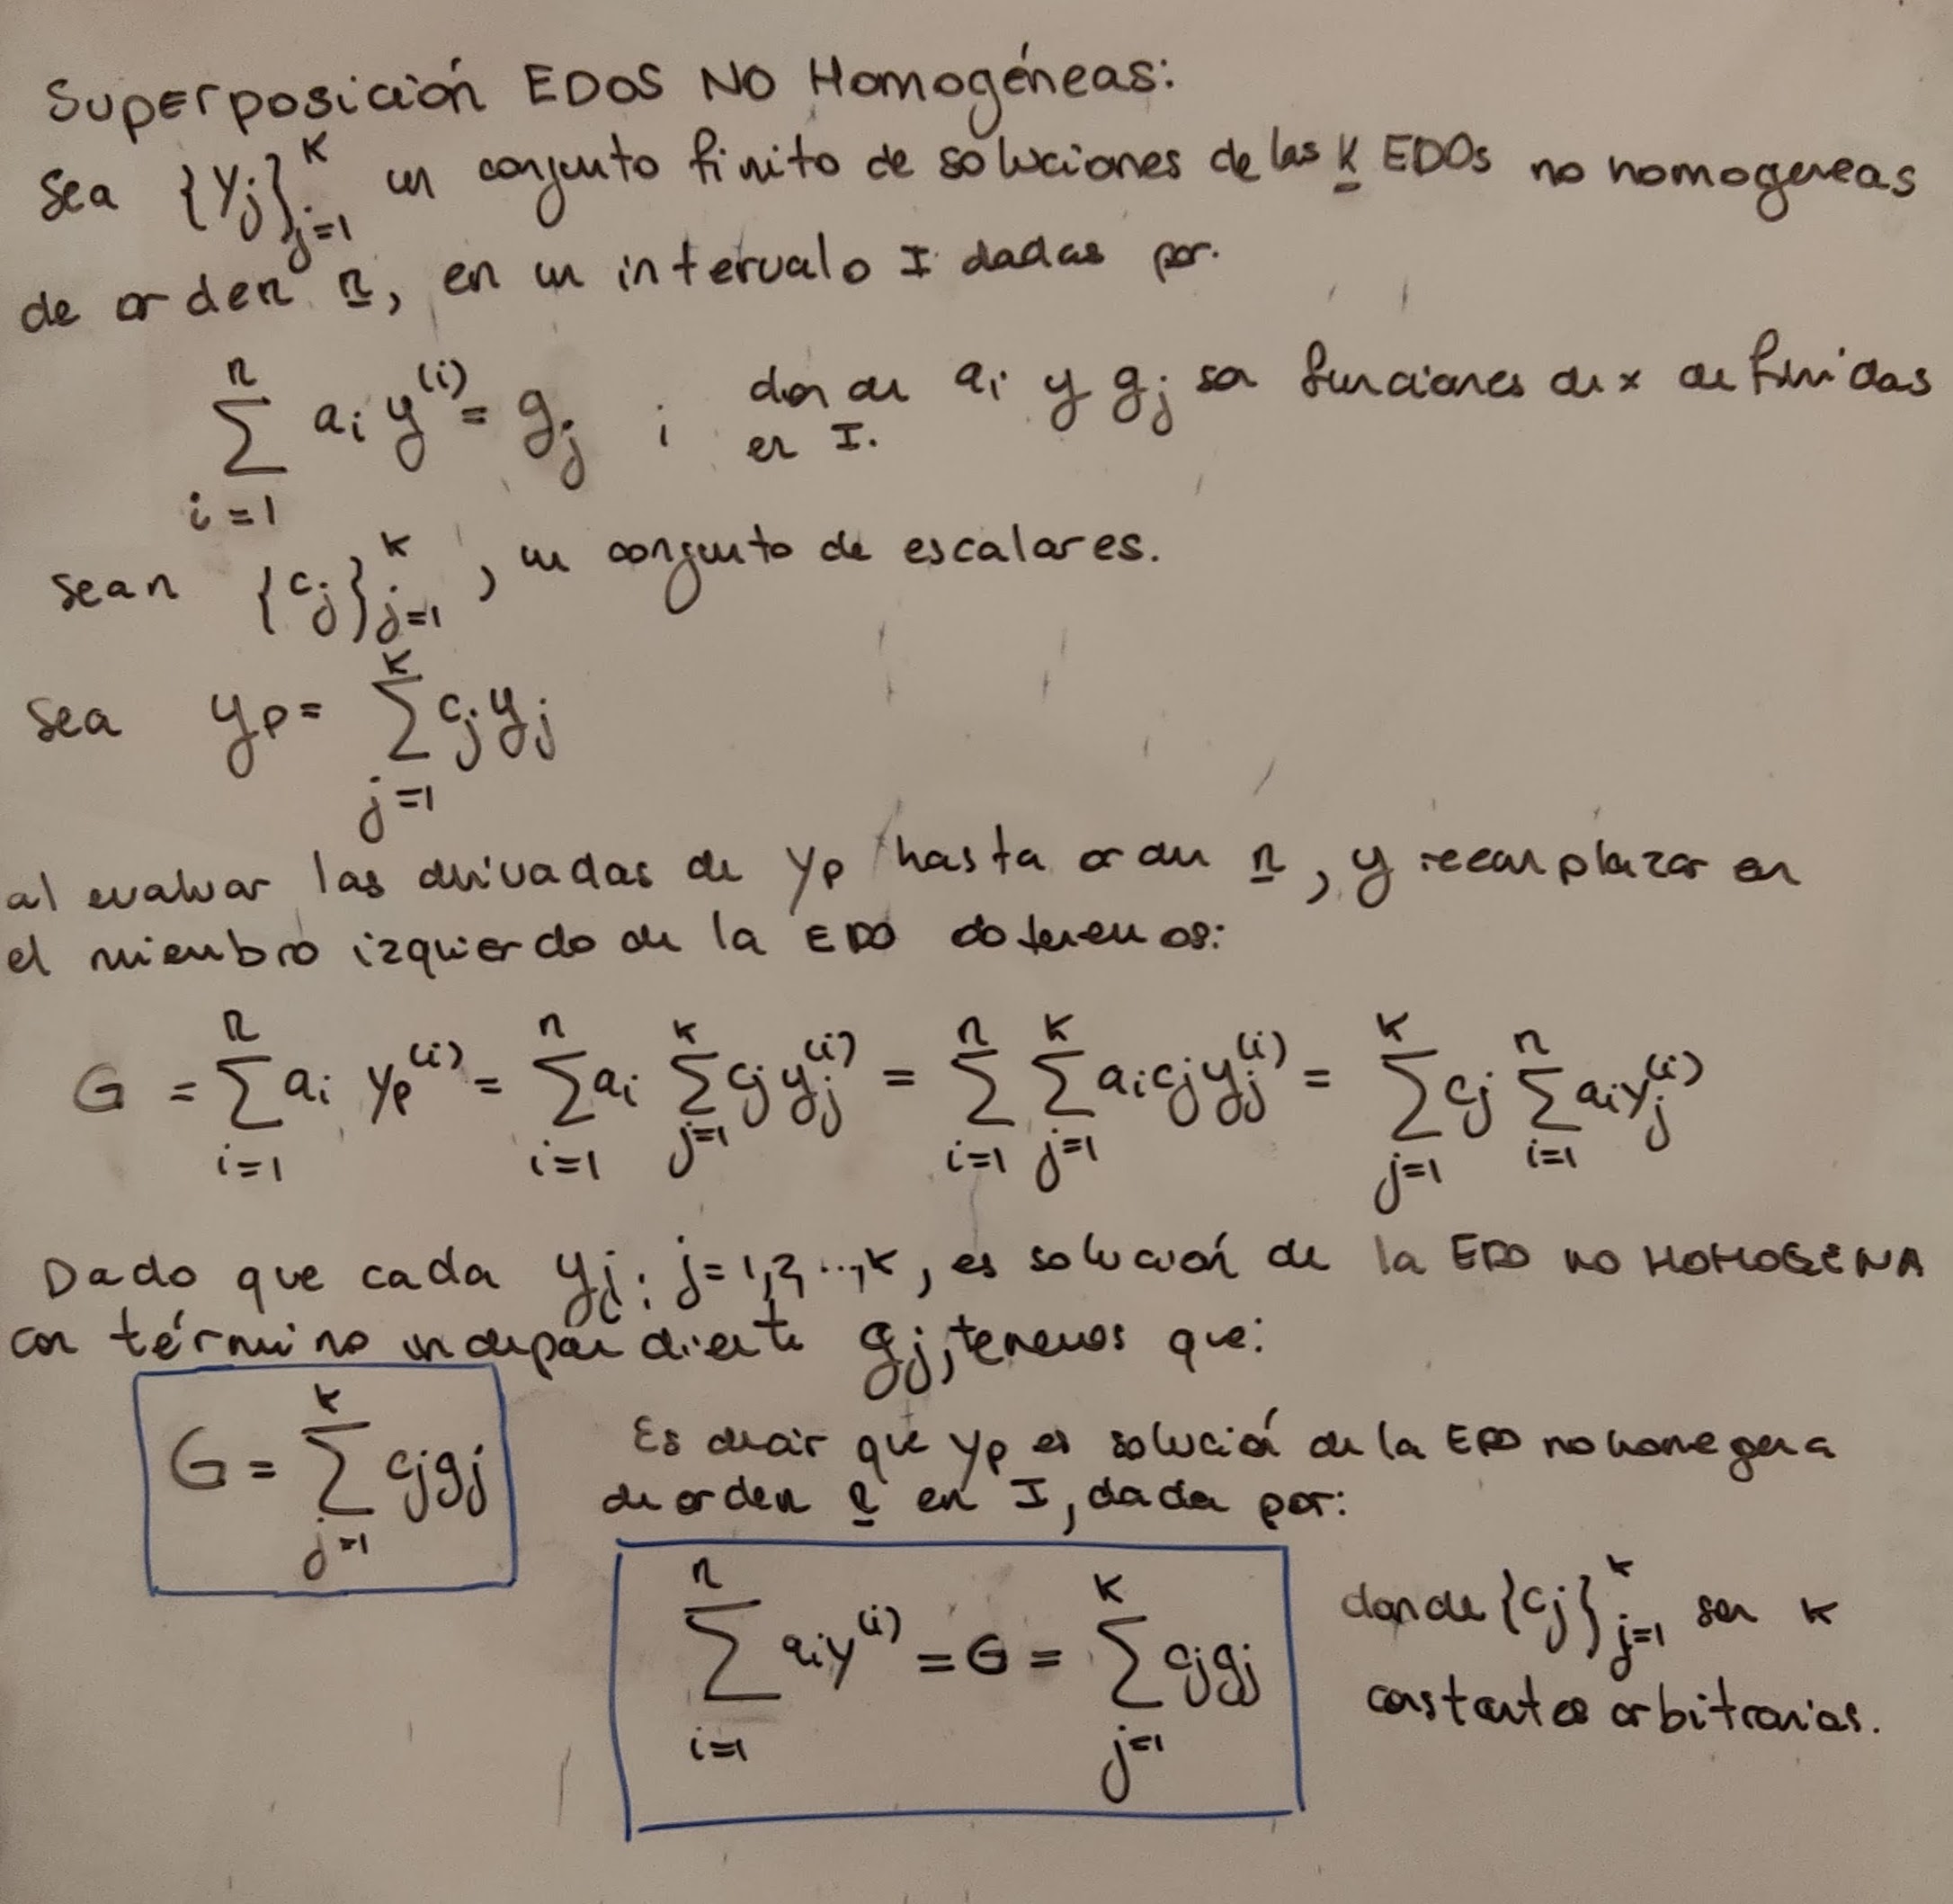 Superposición EDOS NO Homogéneas:
Sea {Yj}_{j=1}^{K} un conjunto finito de soluciones de las K EDOs no homogeneas
de orden n, en un intervalo I dadas por.
\sum_{i=1}^{n} a_i y^{(i)} = g_j ; donde a_i y g_j son funciones de x definidas
en I.
Sean {c_j}_{j=1}^{K}, un conjunto de escalares.
Sea y_p = \sum_{j=1}^{K} c_j y_j
al evaluar las derivadas de y_p hasta orden n, y reemplazar en
el miembro izquierdo de la EDO obtenemos:
G = \sum_{i=1}^{n} a_i y_p^{(i)} = \sum_{i=1}^{n} a_i \sum_{j=1}^{K} c_j y_j^{(i)} = \sum_{i=1}^{n} \sum_{j=1}^{K} a_i c_j y_j^{(i)} = \sum_{j=1}^{K} c_j \sum_{i=1}^{n} a_i y_j^{(i)}
Dado que cada y_j; j=1,2,...,K, es solución de la EDO no HOMOGENA
con término independiente g_j, tenemos que:
G = \sum_{j=1}^{K} c_j g_j
Es decir que y_p es solución de la EDO no homogena
de orden n en I, dada por:
\sum_{i=1}^{n} a_i y^{(i)} = G = \sum_{j=1}^{K} c_j g_j
donde {c_j}_{j=1}^{K} son K
constantes arbitrarias.